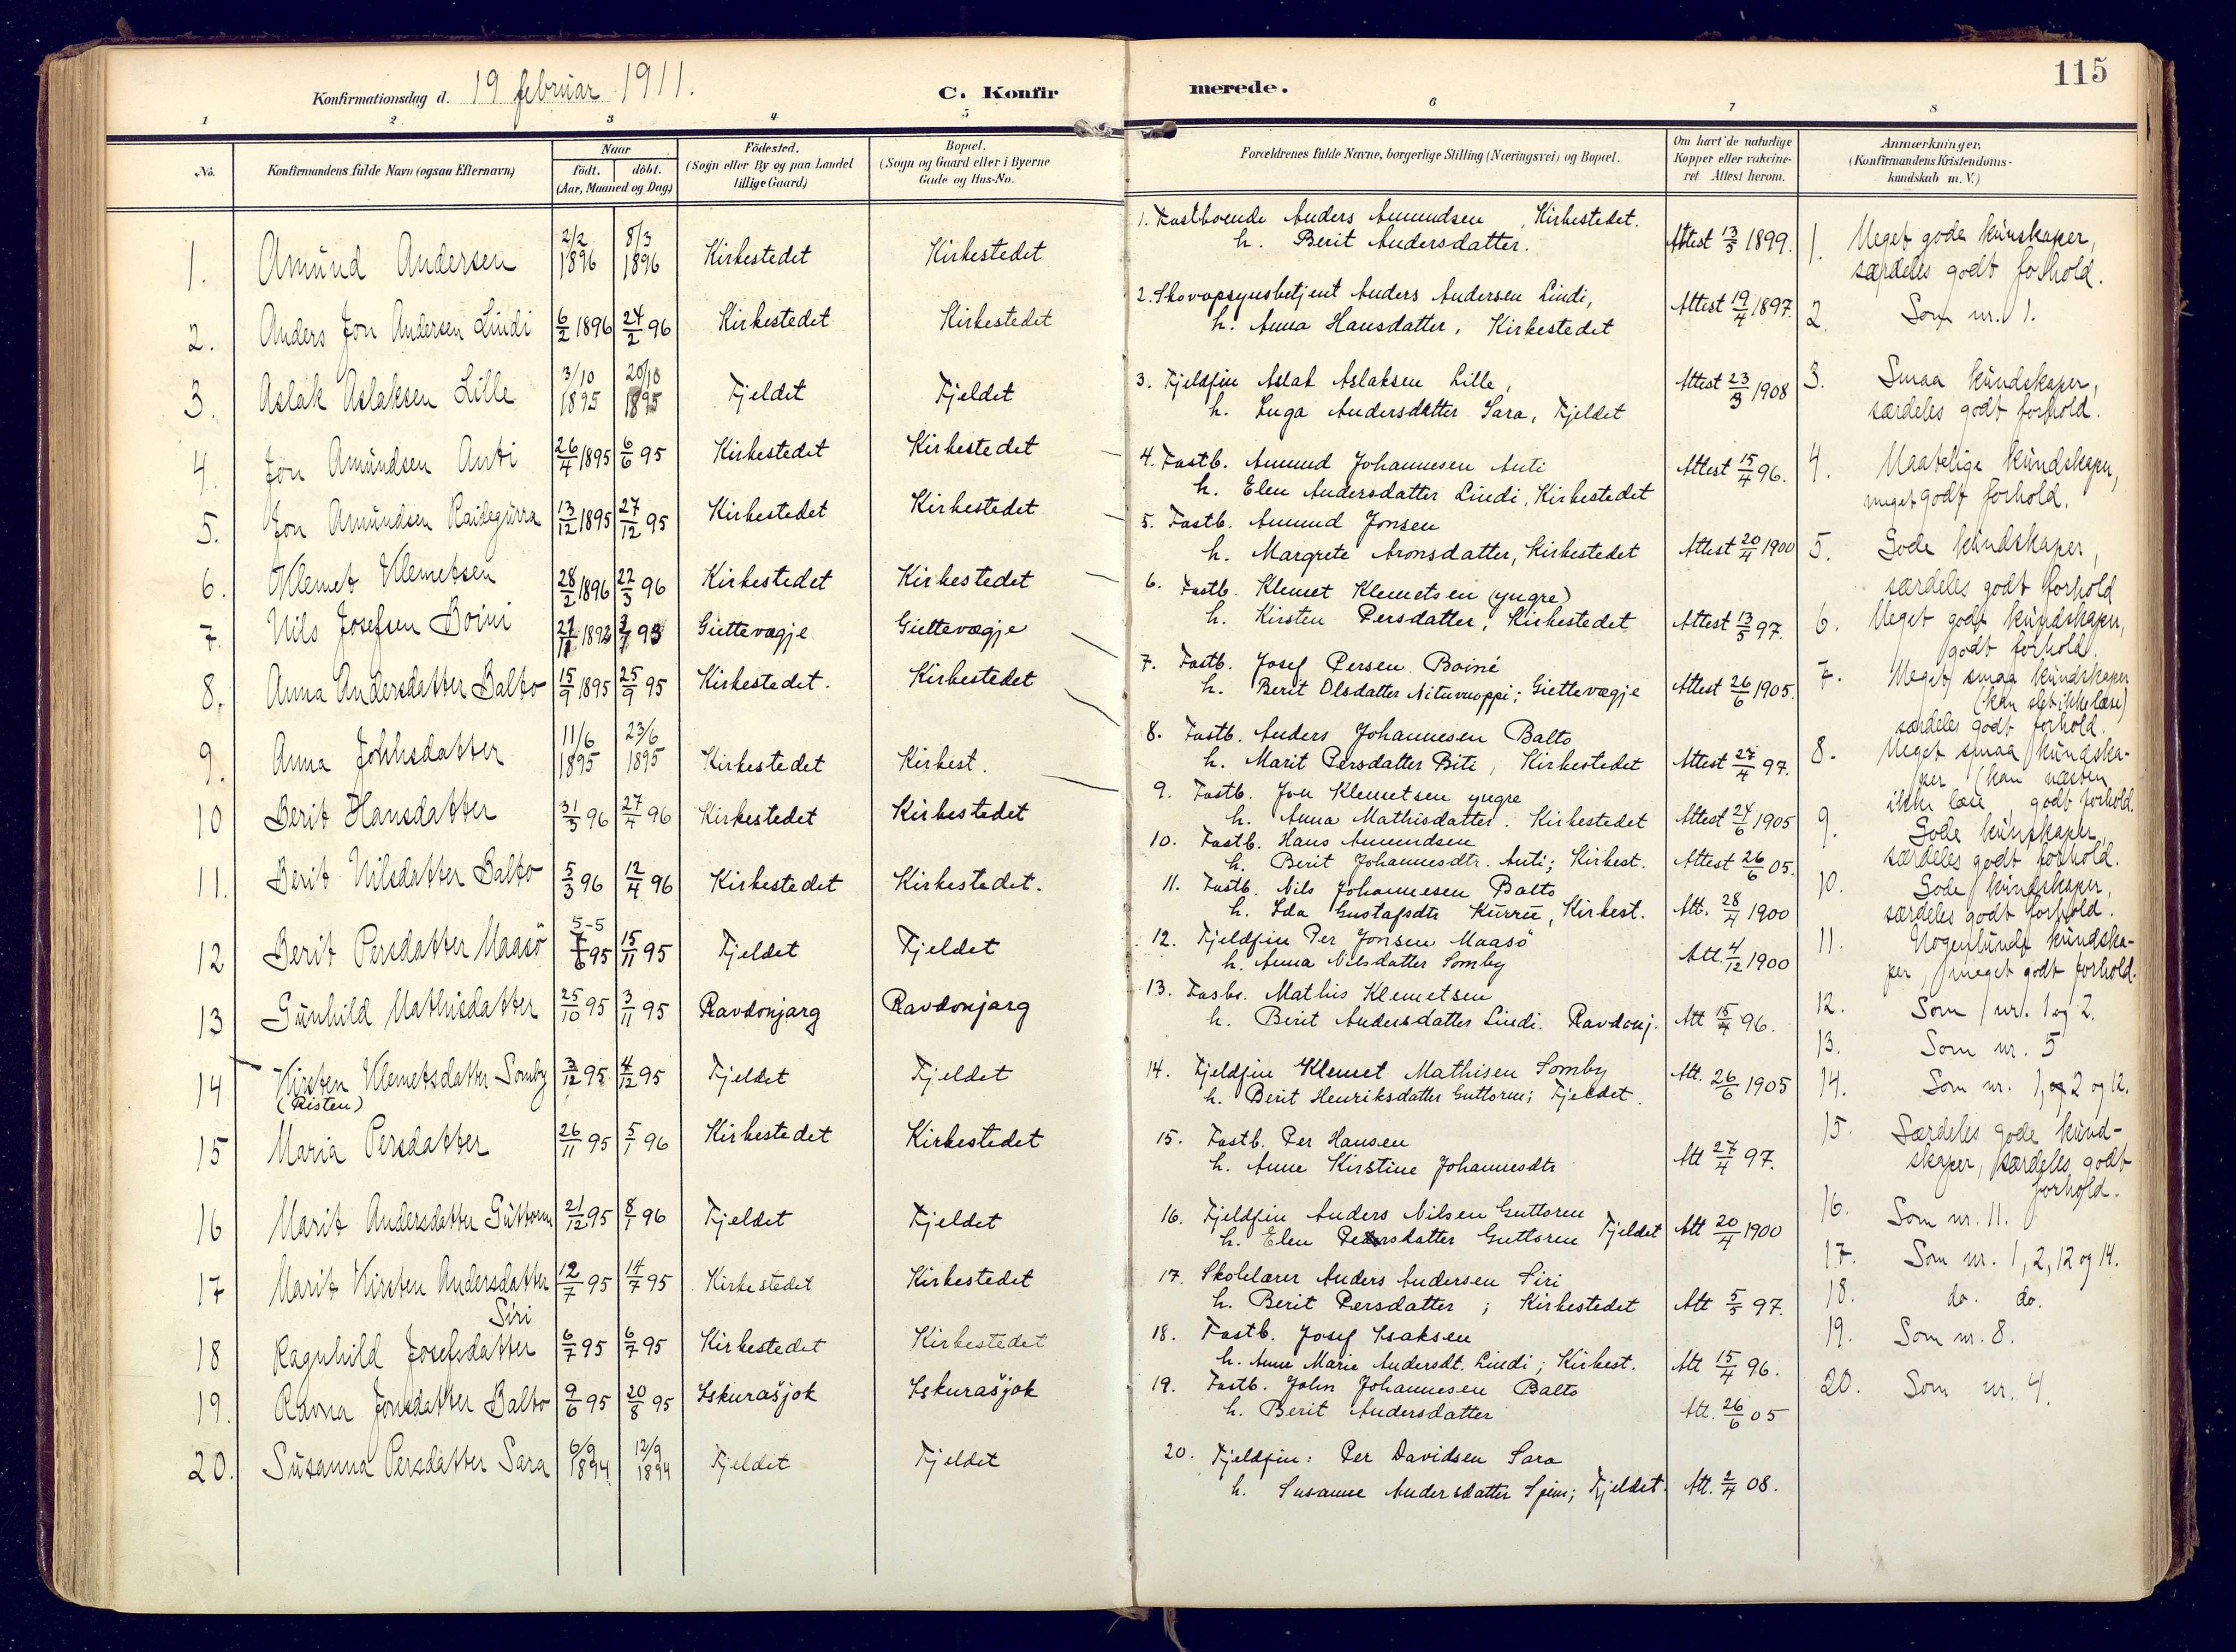 115
Konfirmationsdag d. 19 februar 1911.
C. Konfirmerede.
1 2 3 4 5 6 7 8
No.
Konfirmandens fulde Navn (ogsaa Efternavn)
Naar
födt. döbt.
(Aar, Maaned og Dag)
Födested.
(Sogn eller By og paa Landet
tillige Gaard)
Bopæl.
(Sogn og Gaard eller i Byerne
Gade og Hus-No.
Forældrenes fulde Navne, borgerlige Stilling (Næringsvei) og Bopæl.
Om havt de naturlige
Kopper eller vakcine-
ret Attest herom.
Anmærkninger.
(Konfirmandens Kristendoms-
kundskab m. V.)
1. Amund Andersen 2/2 1896 8/3 1896 Kirkestedet Kirkestedet
2. Anders Jon Andersen Lindi 6/2 1896 24/2 96 Kirkestedet Kirkestedet
3. Aslak Aslaksen Lille 3/10 1895 20/10 1895 Fjeldet Fjeldet
4. Jon Amundsen Anti 26/4 1895 6/6 95 Kirkestedet Kirkestedet
5. Jon Amundsen Raidegurra 13/12 1895 27/12 95 Kirkestedet Kirkestedet
6. Klemet Klemetsen 28/2 1896 22/3 96 Kirkestedet Kirkestedet
7. Nils Josefsen Boini Giettevægje Giettevægje
8. Anna Andersdatter Balto 15/9 1895 25/9 95 Kirkestedet. Kirkestedet
9. Anna Johnsdatter 11/6 1895 23/6 1895 Kirkestedet Kirkest.
10 Berit Hansdatter 31/3 96 27/4 96 Kirkestedet Kirkestedet
11. Berit Nilsdatter Balto 5/3 96 12/4 96 Kirkestedet Kirkestedet.
5-5
12 Berit Persdatter Maasö 95 15/11 95 Fjeldet Fjeldet
13 Gunhild Mathisdatter 25/10 95 3/11 95 Ravdonjarg Ravdonjarg
14 Kirsten Klemetsdatter Somby 3/12 95 4/12 95 Fjeldet Fjeldet
(Risten)
15 Maria Persdatter 26/11 95 5/1 96 Kirkestedet Kirkestedet
16 Marit Andersdatter Guttorm 21/12 95 8/1 96 Fjeldet Fjeldet
17 Marit Kirsten Andersdatter 12/7 95 14/7 95 Kirkestedet Kirkestedet
Siri
18 Ragnhild Josefsdatter 6/7 95 6/7 95 Kirkestedet Kirkestedet
19. Ravna Jonsdatter Balto 9/6 95 20/8 95 Iskurasjok Iskurasjok
20. Susanna Persdatter Sara 6/9 1894 12/9 1894 Fjeldet Fjeldet
1. Fastboende Anders Amundsen, Kirkestedet.
h. Berit Andersdatter. Attest 13/5 1899.
2. Skovopsynsbetjent Anders Andersen Lindi,
h. Anna Hansdatter, Kirkestedet Attest 19/4 1897.
3. Fjeldfin Aslak Aslaksen Lille,
h. Inga Andersdatter Sara, Fjeldet Attest 23/3 1908
4. Fastb. Amund Johannesen Anti
h. Elen Andersdatter Lindi, Kirkestedet Attest 15/4 96.
5. Fastb. Amund Jonsen
h. Margrete Aronsdatter, Kirkestedet Attest 20/4 1900
6. Fastb. Klemet Klemetsen (yngre)
h. Kirsten Persdatter, Kirkestedet Attest 13/5 97.
7. Fastb. Josef Persen Boine
h. Berit Olsdatter Nituvuoppi; Giettevægje Attest 26/6 1905.
8. Fastb. Anders Johannesen Balto
h. Marit Persdatter Biti, Kirkestedet Attest 27/4 97.
9. Fastb. Jon Klemetsen yngre
h. Anna Mathisdatter. Kirkestedet Attest 24/6 1905
10. Fastb. Hans Amundsen
h. Berit Johannesdtr. Anti; Kirkest. Attest 26/6 05.
11. Fastb. Nils Johannesen Balto
h. Ida Gustafsdtr Kurru, Kirkest. Att. 28/4 1900
12. Fjeldfin Per Jonsen Maasö
h. Anna Nilsdatter Somby Att. 4/12 1900
13. Fasbo. Mathis Klemetsen
h. Berit Andersdatter Lindi. Ravdonj. Att 15/4 96.
14. Fjeldfin Klemet Mathisen Somby
h. Berit Henriksdatter Guttorm; Fjeldet. Att. 26/6 1905
15. Fastb. Per Hansen
h. Anne Kirstine Johannesdtr Att 27/4 97.
16. Fjeldfin Anders Nilsen Guttorm
h. Elen Persdatter Guttorm Fjeldet Att 20/4 1900
17. Skolelærer Anders Andersen Siri
h. Berit Persdatter; Kirkestedet Att 5/5 97.
18. Fastb. Josef Isaksen
h. Anne Marie Andersdt. Lindi; Kirkest. Att 15/4 96.
19. Fastb. John Johannesen Balto
h. Berit Andersdatter Att. 26/6 05
20. Fjeldfin: Per Davidsen Sara
h. Susanne Andersdatter Spein; Fjeldet. Att. 2/4 08.
1. Meget gode kunskaper,
særdeles godt forhold.
2. Som nr. 1.
3. Smaa kundskaper,
særdeles godt forhold.
4. Maatelige kundskaper,
meget godt forhold.
5. Gode kundskaper,
særdeles godt forhold
6. Meget gode kundskaper,
godt forhold.
7. Meget smaa kundskaper
(kan slet ikke læse)
særdeles godt forhold.
8. Meget smaa kundska-
per (kan næsten
ikke læse, godt forhold.
9. Gode kunskaper,
særdeles godt forhold.
10. Gode kundskaper,
særdeles godt forhold.
11. Nogenlunde kundska-
per, meget godt forhold.
12. Som nr. 1 og 2.
13. Som nr. 5
14. Som nr. 1, 2 og 12.
15. Særdeles gode kund-
skaper, særdeles godt
forhold.
16. Som nr. 11.
17. Som nr. 1, 2, 12 og 14.
18. do. do.
19. Som nr. 8.
20. Som nr. 4.